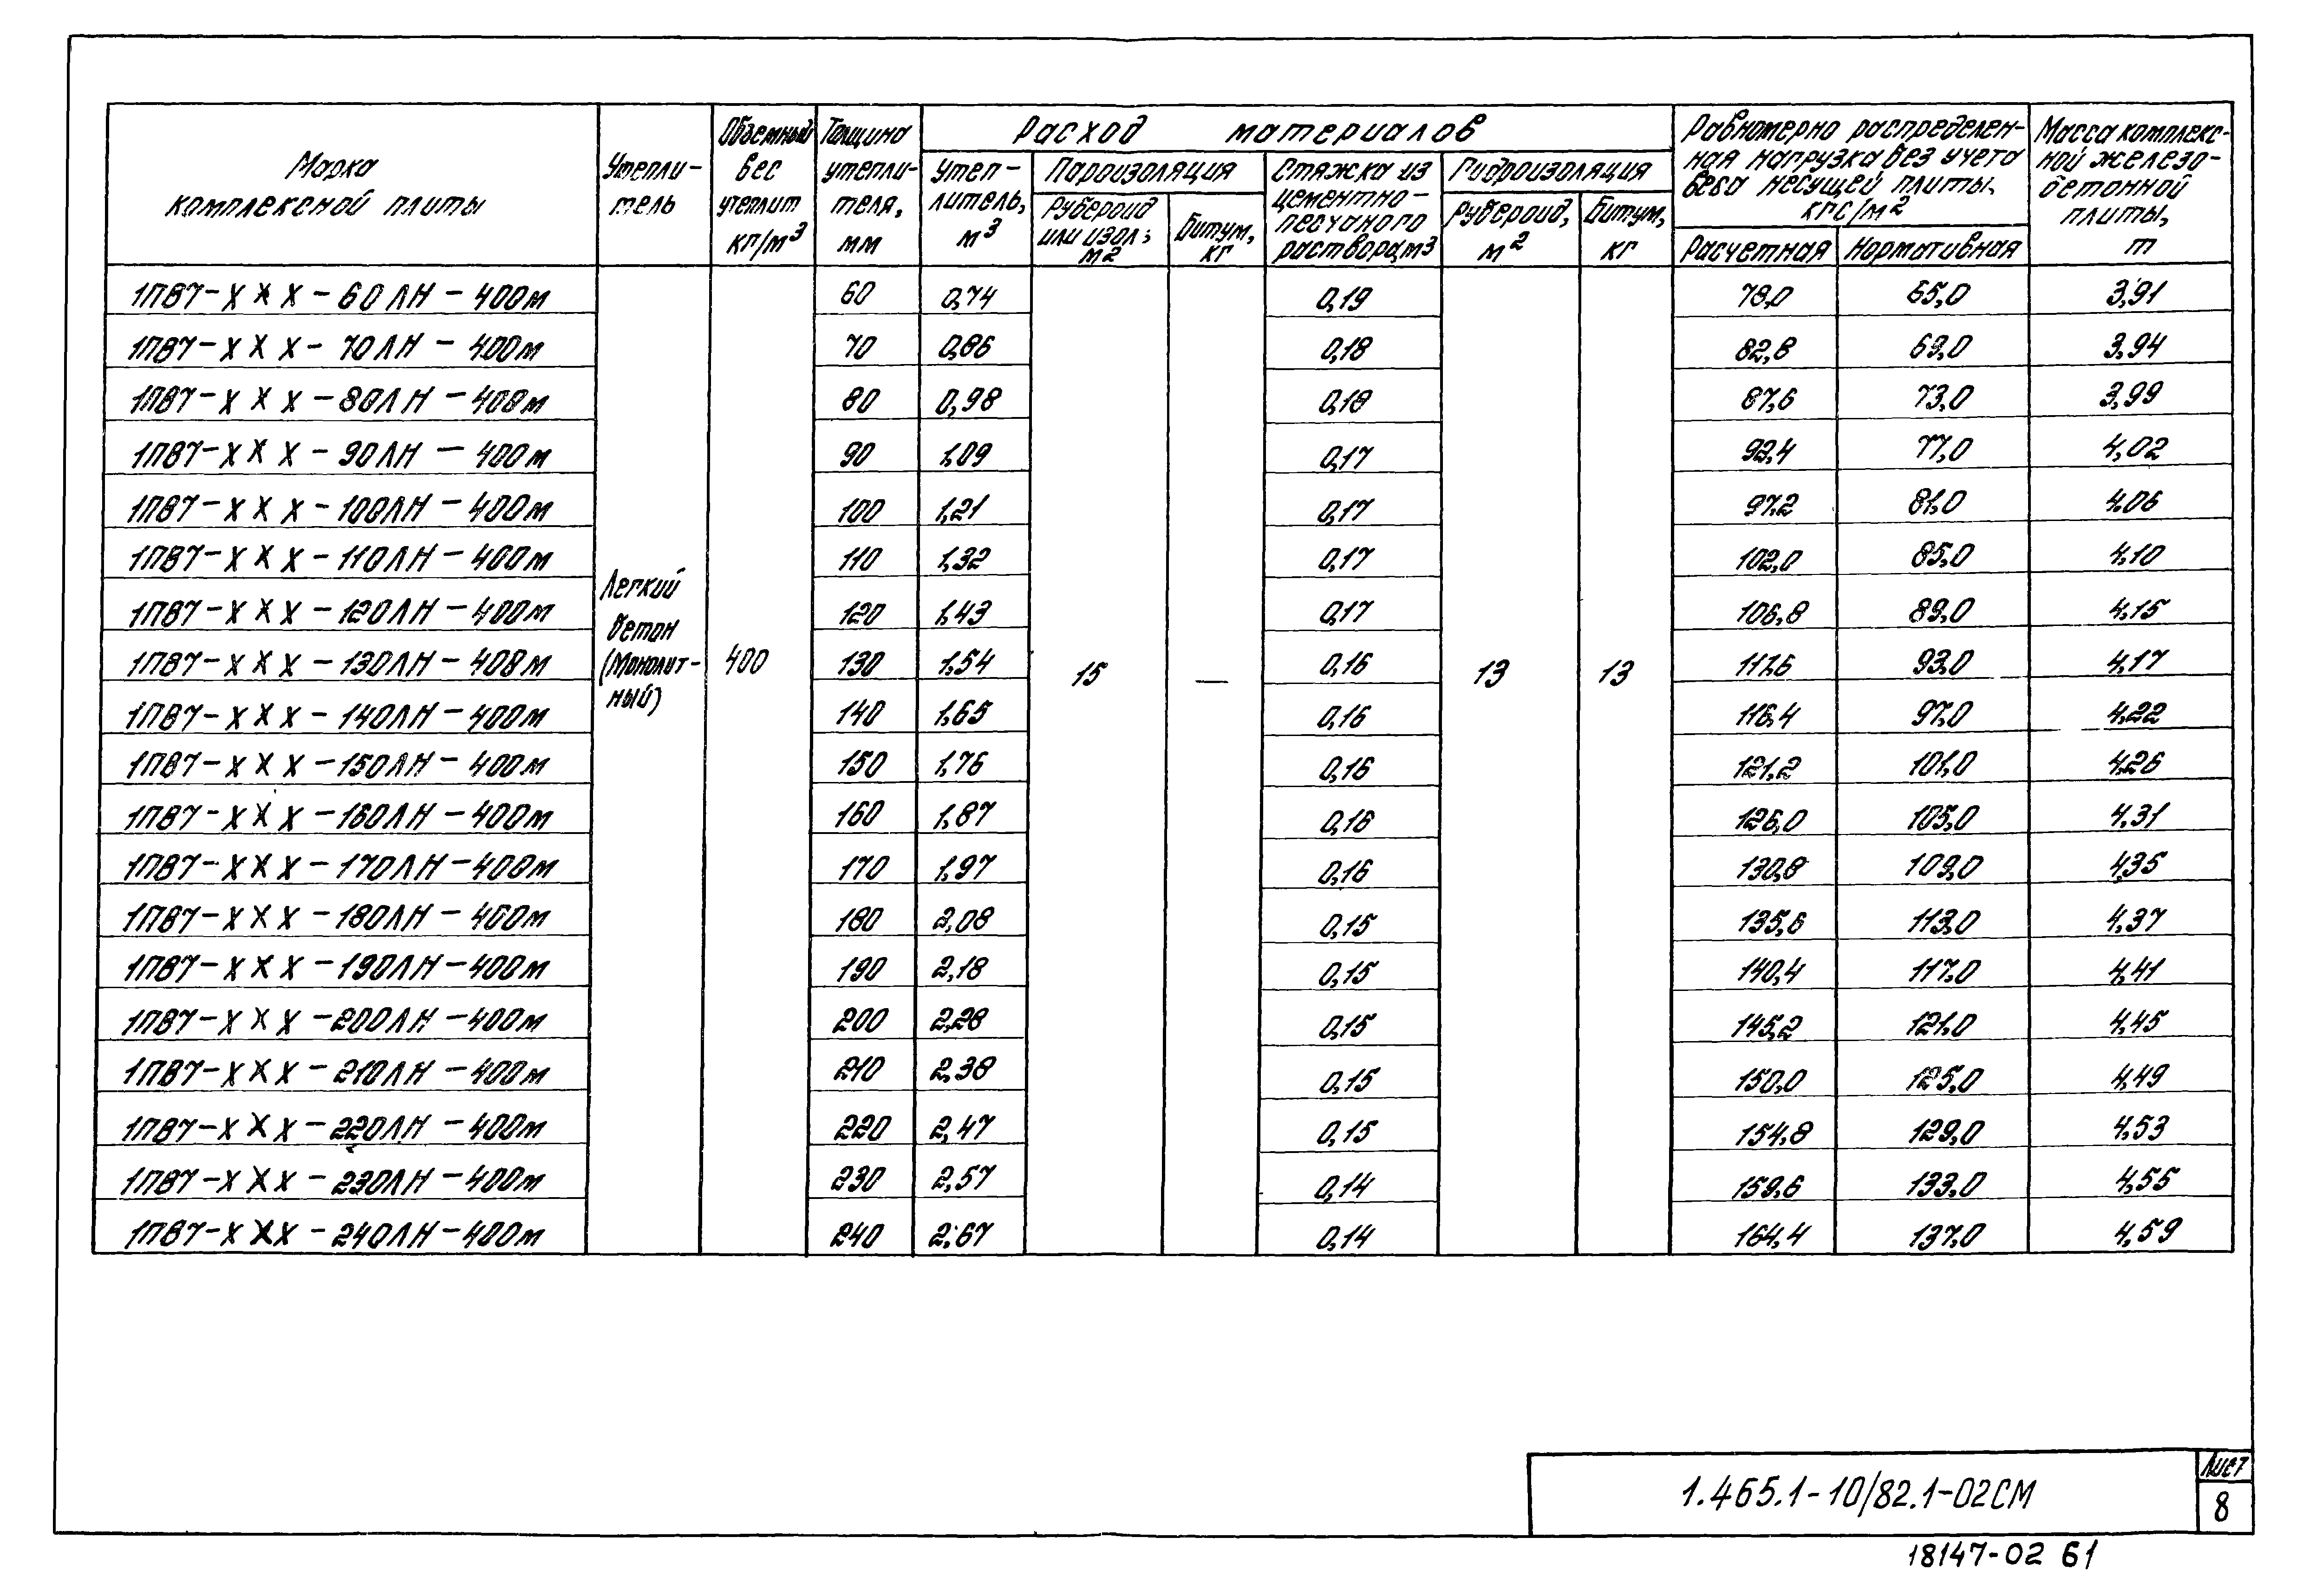 Марка комплексной плиты
Утепли-тель
Объемный вес утеплит кг/м³
Толщина утепли-теля, мм
Расход материалов
Утеп-литель, м³
Пароизоляция
Рубероид или изол; м2
Битум, кг
Стяжка из цементно-песчаного раствора, м3
Гидроизоляция
Рубероид, м²
Битум, кг
Равномерно распределен-ная нагрузка без учета веса несущей плиты. кгс/м²
Расчетная
Нормативная
Масса комплекс-ной железо-бетонной плиты, т
1ПВ7-ХХХ-60ЛН-400м 60 0,74 0,19 78,0 65,0 3,91
1ПВ7-ХХХ-70ЛН-400м 70 0,86 0,18 82,8 69,0 3,94
1ПВ7-ХХХ-80ЛН-400м 80 0,98 0,18 87,6 73,0 3,99
1ПВ7-ХХХ-90ЛН-400м 90 1,09 0,17 92,4 77,0 4,02
1ПВ7-ХХХ-100ЛН-400м 100 1,21 0,17 97,2 81,0 4,06
1ПВ7-ХХХ-110ЛН-400м 110 1,32 0,17 102,0 85,0 4,10
1ПВ7-ХХХ-120ЛН-400м 120 1,43 0,17 106,8 89,0 4,15
Легкий бетон (Монолит-ный)
400
1ПВ7-ХХХ-130ЛН-400м 130 1,54 15 — 0,16 13 13 111,6 93,0 4,17
1ПВ7-ХХХ-140ЛН-400м 140 1,65 0,16 116,4 97,0 4,22
1ПВ7-ХХХ-150ЛН-400м 150 1,76 0,16 121,2 101,0 4,26
1ПВ7-ХХХ-160ЛН-400м 160 1,87 0,16 126,0 105,0 4,31
1ПВ7-ХХХ-170ЛН-400м 170 1,97 0,16 130,8 109,0 4,35
1ПВ7-ХХХ-180ЛН-400м 180 2,08 0,15 135,6 113,0 4,37
1ПВ7-ХХХ-190ЛН-400м 190 2,18 0,15 140,4 117,0 4,41
1ПВ7-ХХХ-200ЛН-400м 200 2,28 0,15 145,2 121,0 4,45
1ПВ7-ХХХ-210ЛН-400м 210 2,38 0,15 150,0 125,0 4,49
1ПВ7-ХХХ-220ЛН-400м 220 2,47 0,15 154,8 129,0 4,53
1ПВ7-ХХХ-230ЛН-400м 230 2,57 0,14 159,6 133,0 4,55
1ПВ7-ХХХ-240ЛН-400м 240 2,67 0,14 164,4 137,0 4,59
1.465.1-10/82.1-02СМ
Лист
8
18147-02 61